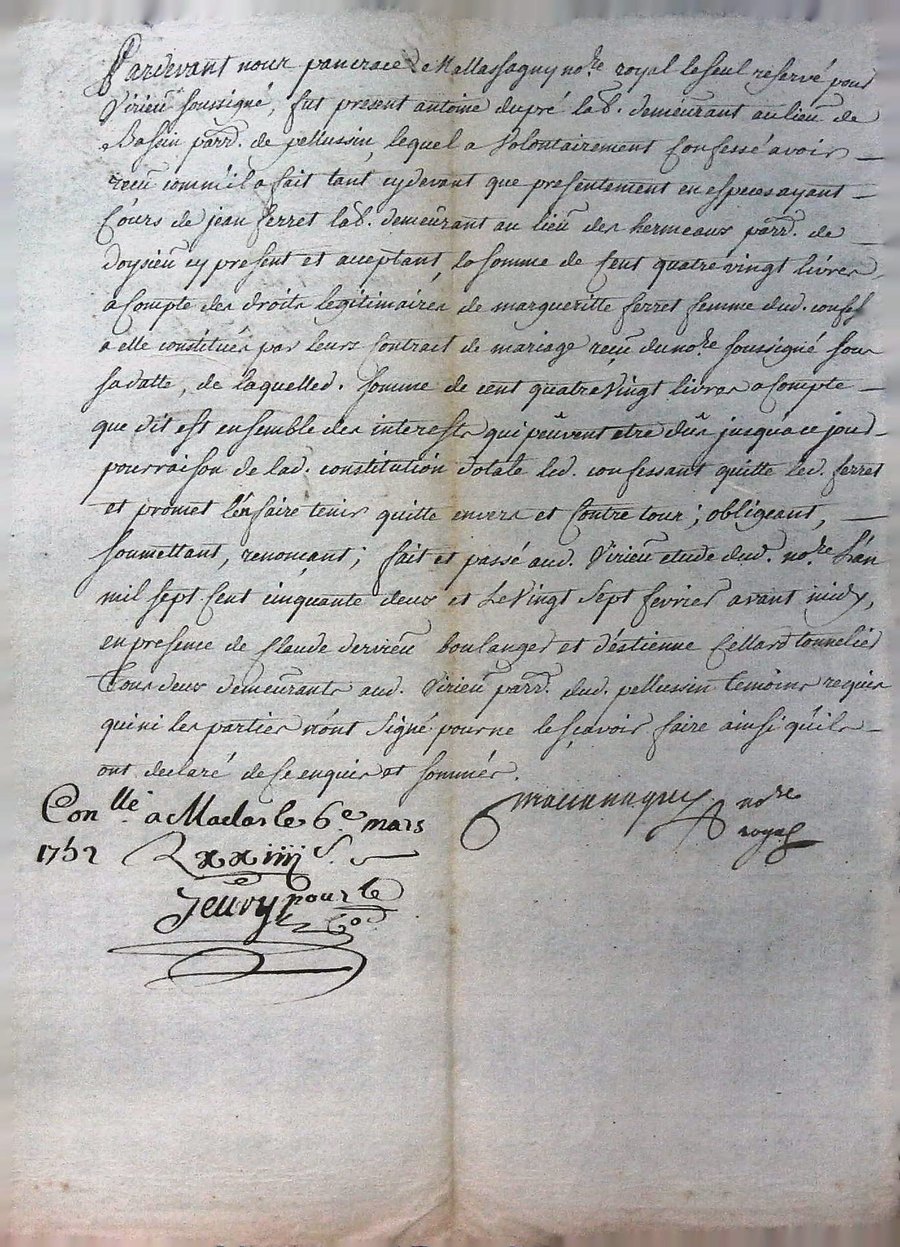 Pardevant nous pancrace de Mallassagny no.re royal le seul reservé pour
Virieu soussigné, fut present antoine dupré lab.r demeurant au lieu de
Bassin parr. de pellussin, lequel a volontairement Confessé avoir
reçu comm'il a fait tant cydevant que presentement en especes ayant
Cours de jean ferret lab.r demeurant au lieu des hermeaux parr. de
doysieu cy present et acceptant, la somme de Cent quatre vingt livres
a Compte des droits legitimaires de margueritte ferret femme dud. confes.
a elle constitués par leurs Contrat de mariage reçu du no.re soussigné sous
sa datte, de laquelled. somme de cent quatre vingt livres a Compte
que dit est ensemble des interests qui peuvent etre dus jusqua ce jour
pour raison de lad. constitution dotale led. confessant quitte led. ferret
et promet l'en faire tenir quitte envers et Contre tous; obligeant,
soumettant, renonçant; fait et passé aud. Virieu etude dud. no.re L'an
mil sept Cent cinquante deux et Le Vingt sept fevrier avant midy,
en presence de Claude dervieu boulanger et d'estienne Cellard tonnelier
Tous deux demeurants aud. Virieu parr. dud. pellussin temoins requis
qui ni les parties n'ont signé pour ne le sçavoir faire ainsi qu'ils
ont declaré de ce enquis et sommés.
no.re
royal
Con.llé a Maclas le 6e mars
1752 R xxiiij s.
Jeury pour le